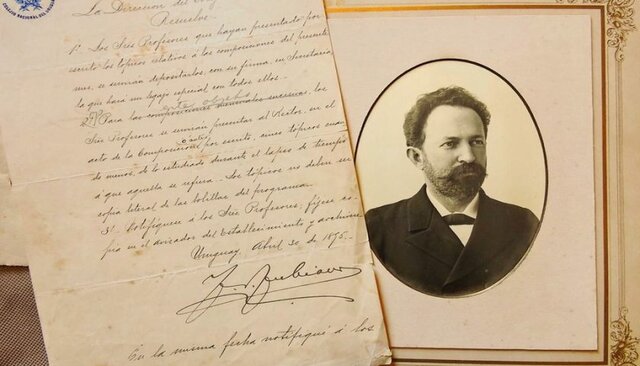 COLEGIO NACIONAL DEL URUGUAY
La Direccion del
Resuelve
1º Los Sres Profesores que hayan presentado por
escrito los tópicos relativos á las composiciones del presente
mes, se servirán depositarlos, con su firma, en Secretaría
la que hará un legajo especial con todos ellos.
este objeto
2º Para las composiciones mensuales sucesivas, los
Sres Profesores se servirán presentar al Rector, en el
acto de la Composición por escrito, cinco tópicos cuan
do menos, de lo estudiado durante el lapso de tiempo
á que aquella se refiera. Los tópicos no deben ser
copia literal de las bolillas del programa.
3º Notifíquese á los Sres Profesores, fíjese co-
pia en el avisador del Establecimiento y archívese
Uruguay, Abril 30 de 1895.
En la misma fecha notifiqué á los